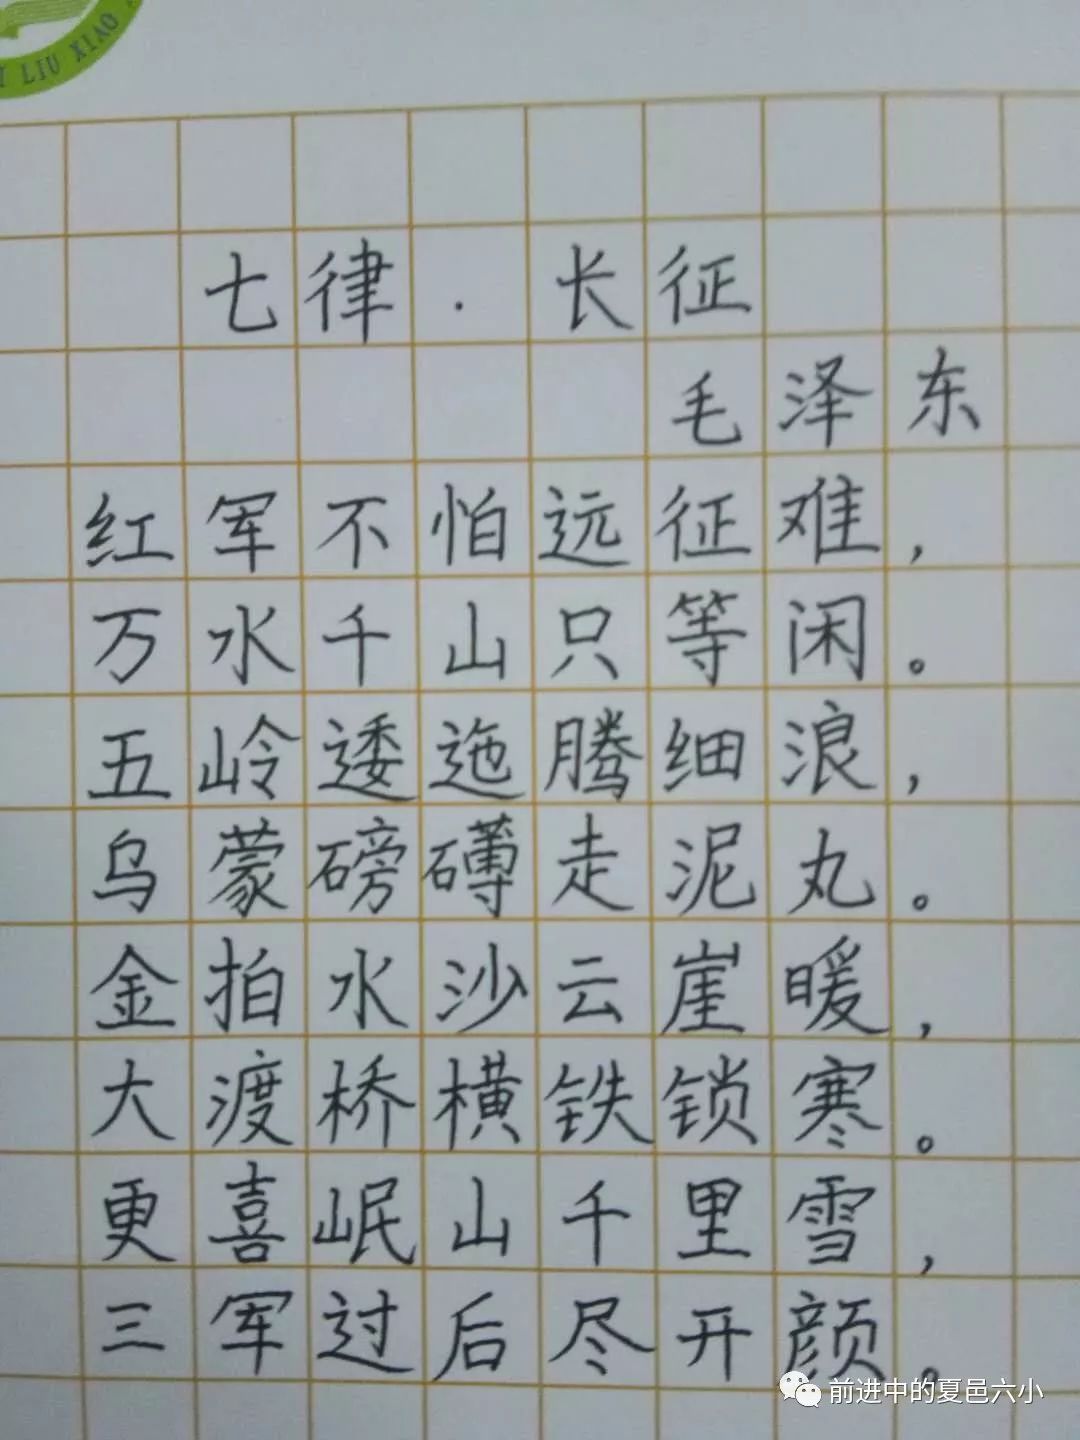 LIU XIAO
七律·长征
毛泽东
红军不怕远征难，
万水千山只等闲。
五岭逶迤腾细浪，
乌蒙磅礴走泥丸。
金拍水沙云崖暖，
大渡桥横铁锁寒。
更喜岷山千里雪，
三军过后尽开颜。
前进中的夏邑六小